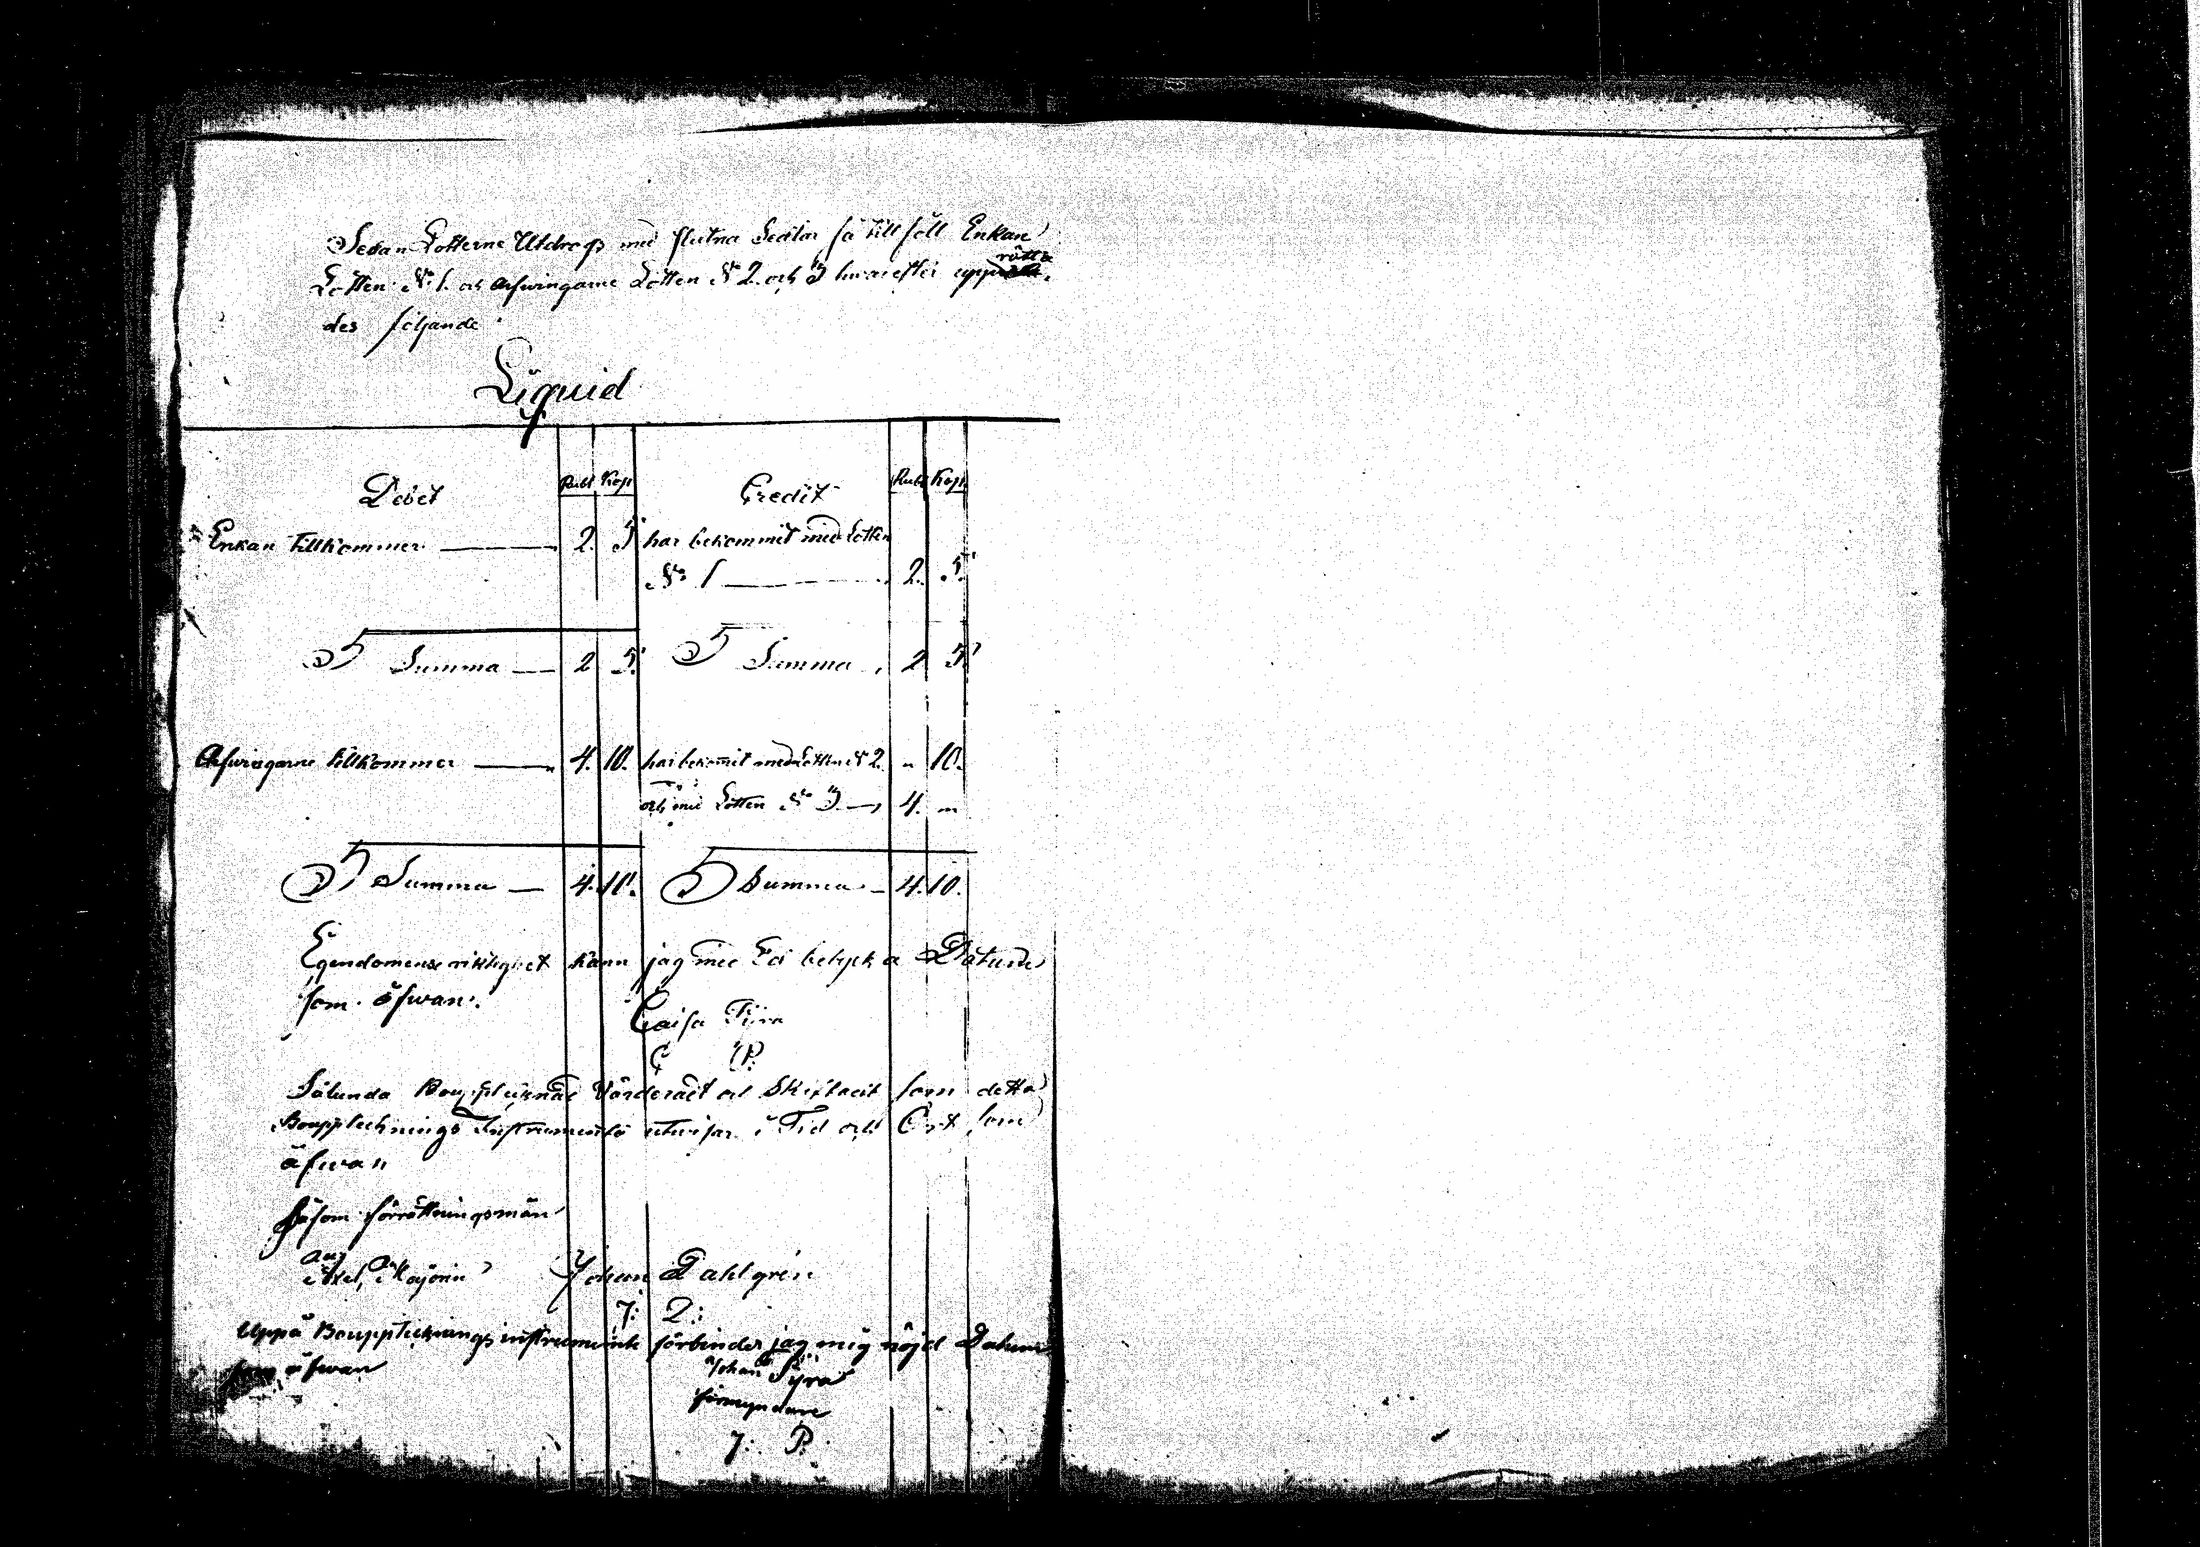 Sedan Lotterne Utdrags med slutna Sedlar så tillföll Enkan
Lotten N:o 1. och Arfwingarne Lotten N:o 2. och 3 hwarefter upprätta
des följande
Liquid
Debet Rubl Kop Credit Rubl Kop
Enkan tillkommer 2. 5 har bekommit med Lotten
N:o 1 2. 5.
Summa 2 5. Summa 2 5
Arfwingarne tillkommer 4. 10. har bekomit med Lotten N:o 2. " 10.
och med Lotten N:o 3 4. "
Summa 4. 10. Summa 4. 10.
Egendomens riktighet kann jag med Ed betyka Datum
som åfwan.
Caisa Tÿra
C P.
Sålunda Bouptecknat Värderadt och Skiftadt som detta
Boupptecknings Instrument utwisar i Tid och Ort som
åfwan
Såsom förrättningsmän
Axel Majorin Johan Dahlgren
J: D:
Uppå Boupptecknings instrument förbinder jag mig nöjd Datum
som åfwan
Johan Tyra
förmyndare
J: P.